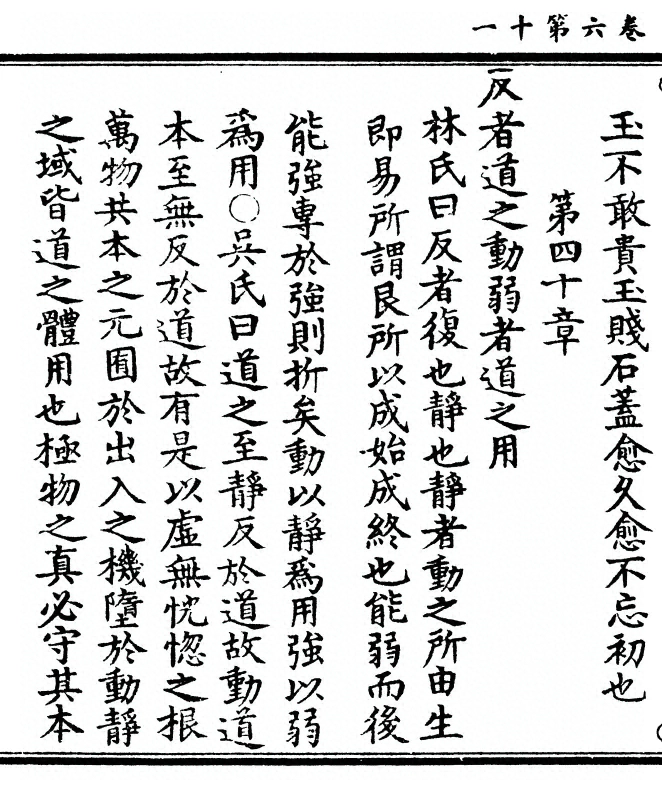 卷六第十一
玉不敢貴玉賤石蓋愈久愈不忘初也
第四十章
反者道之動弱者道之用
林氏曰反者復也靜也靜者動之所由生
即易所謂艮所以成始成終也能弱而後
能強專於強則折矣動以靜爲用強以弱
爲用○吳氏曰道之至靜反於道故動道
本至無反於道故有是以虛無恍惚之根
萬物共本之元囿於出入之機墮於動靜
之域皆道之體用也極物之真必守其本